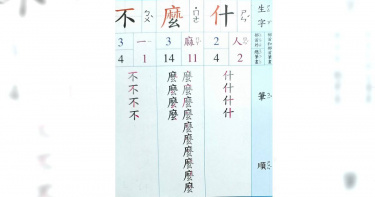 生字
筆順
什
人 2
2 4
什什什什
麼
麻 11
3 14
麼麼麼麼麼麼麼麼麼麼
麼麼麼麼
不
一 1
3 4
不不不不